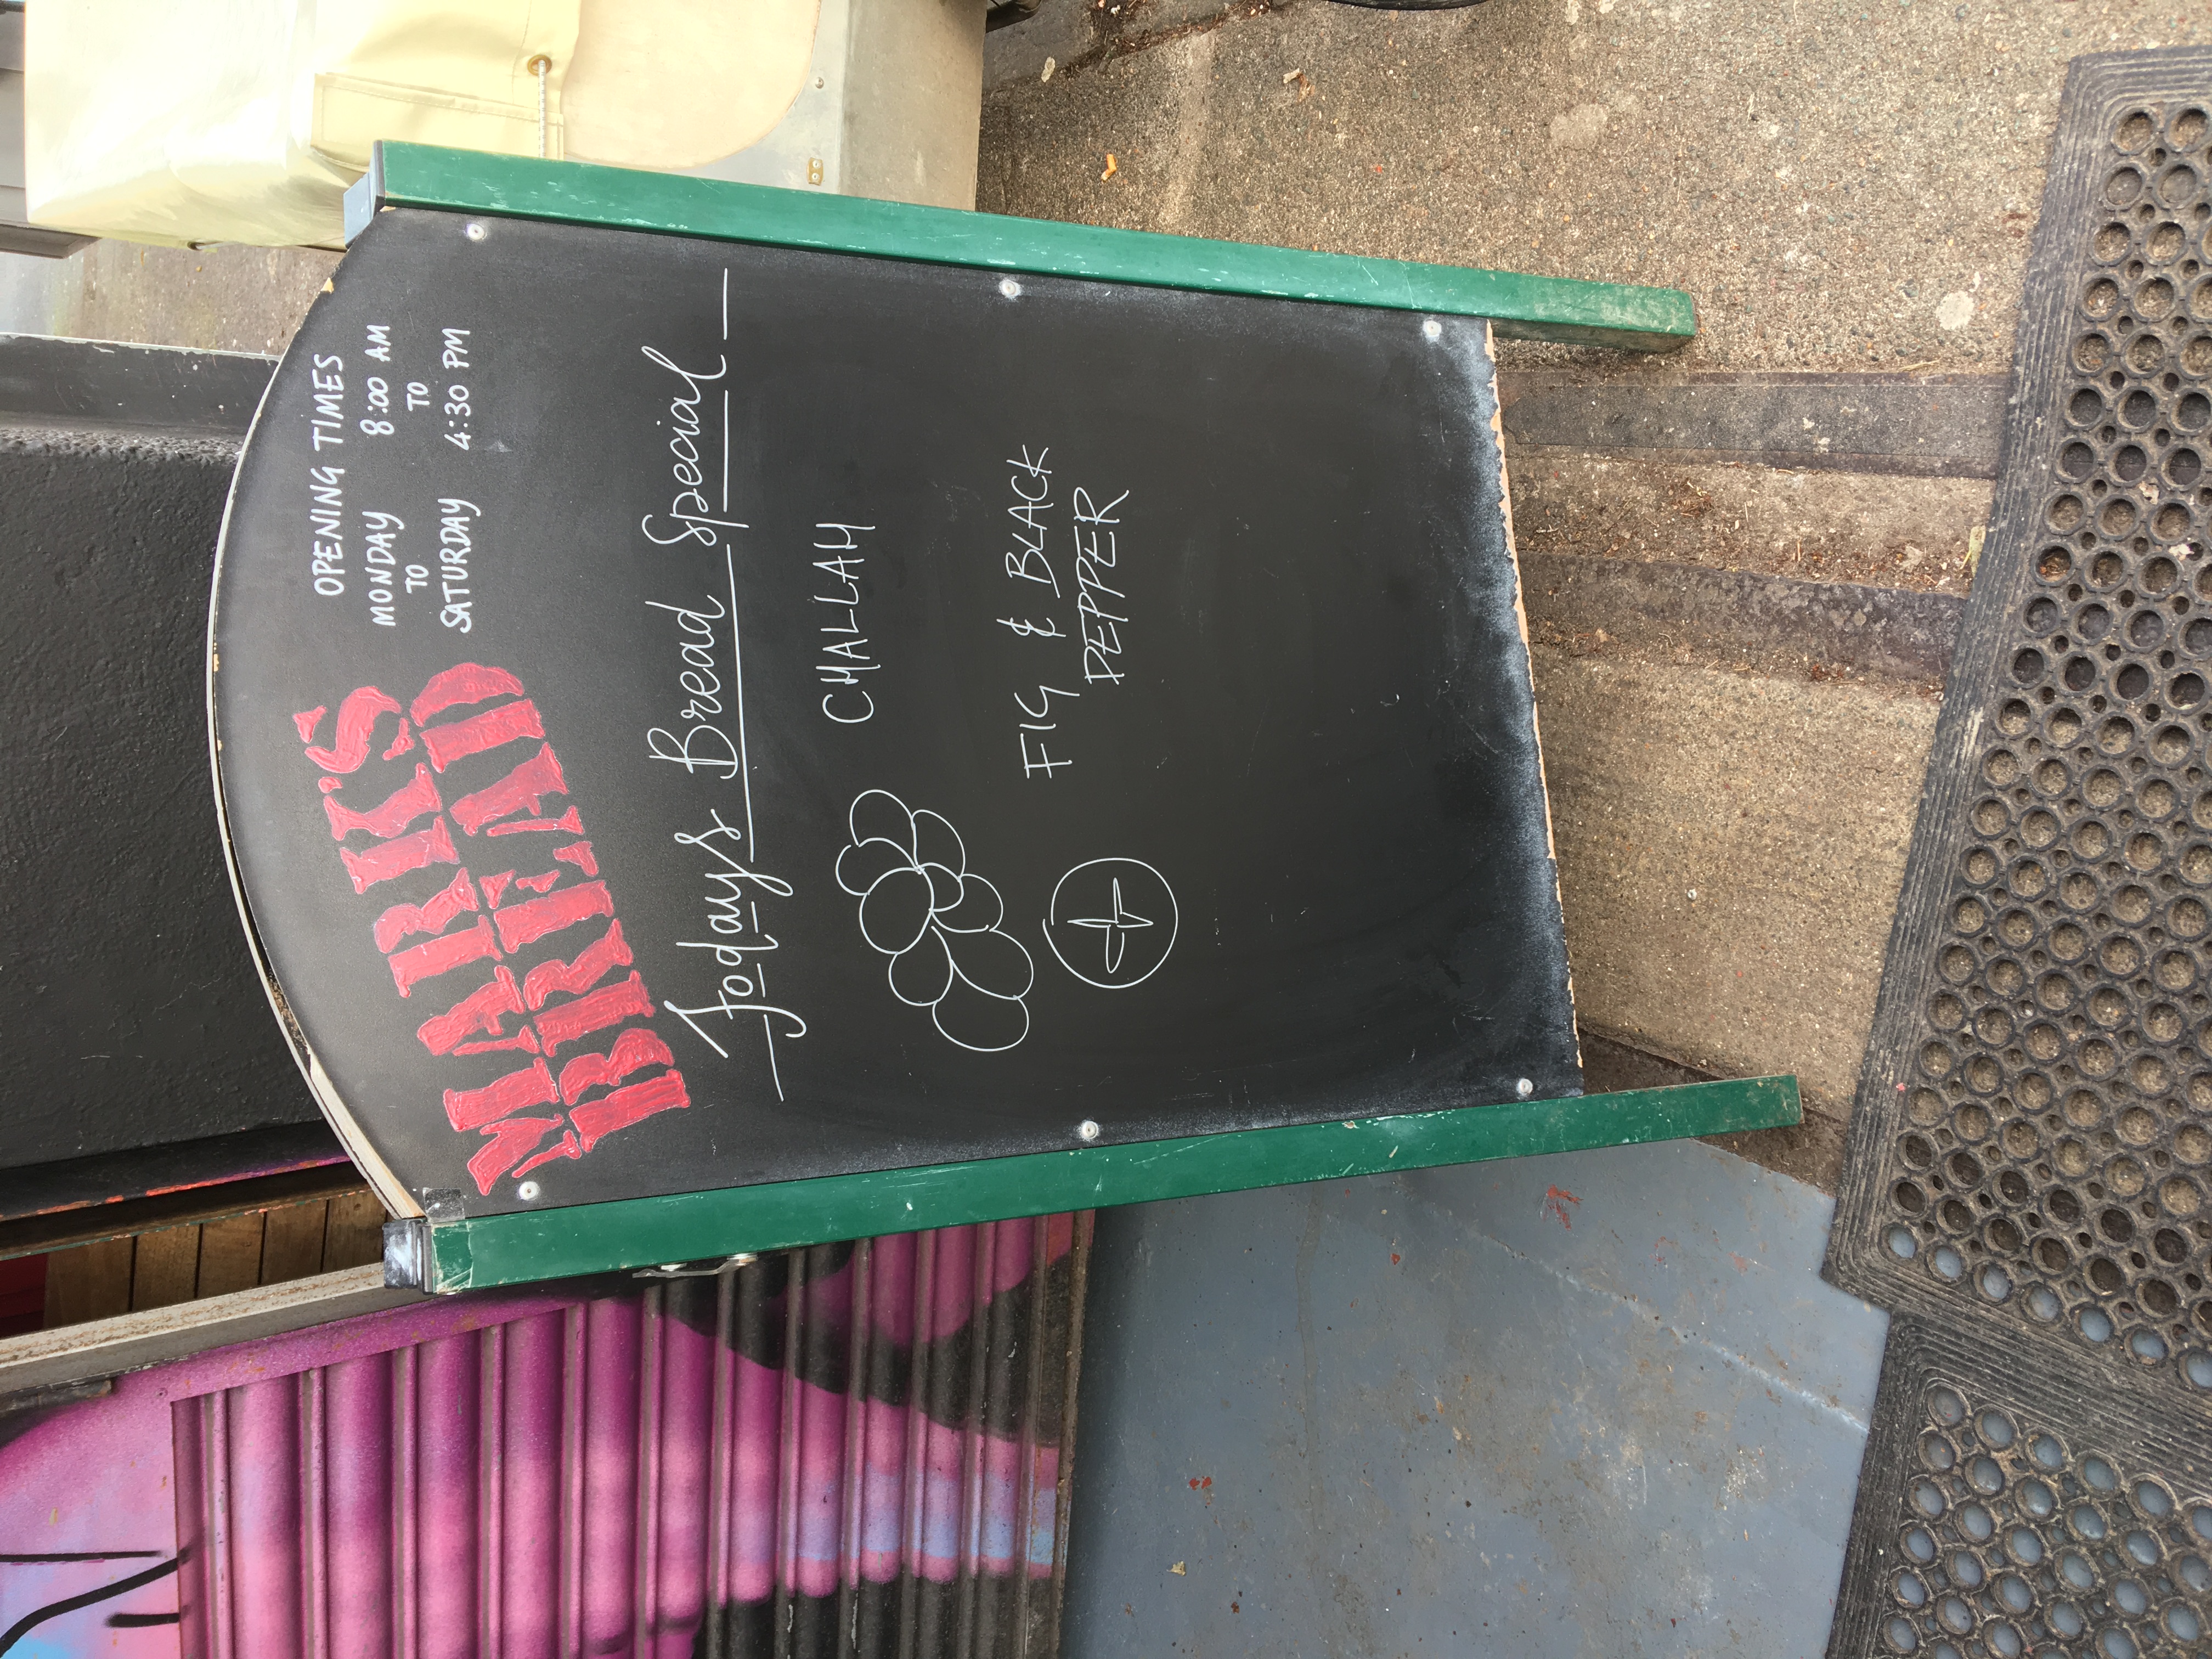 MARK'S
BREAD
OPENING TIMES
MONDAY 8:00 AM
TO TO
SATURDAY 4:30 PM
Todays Bread Special
CHALLAH
FIG & BLACK
PEPPER